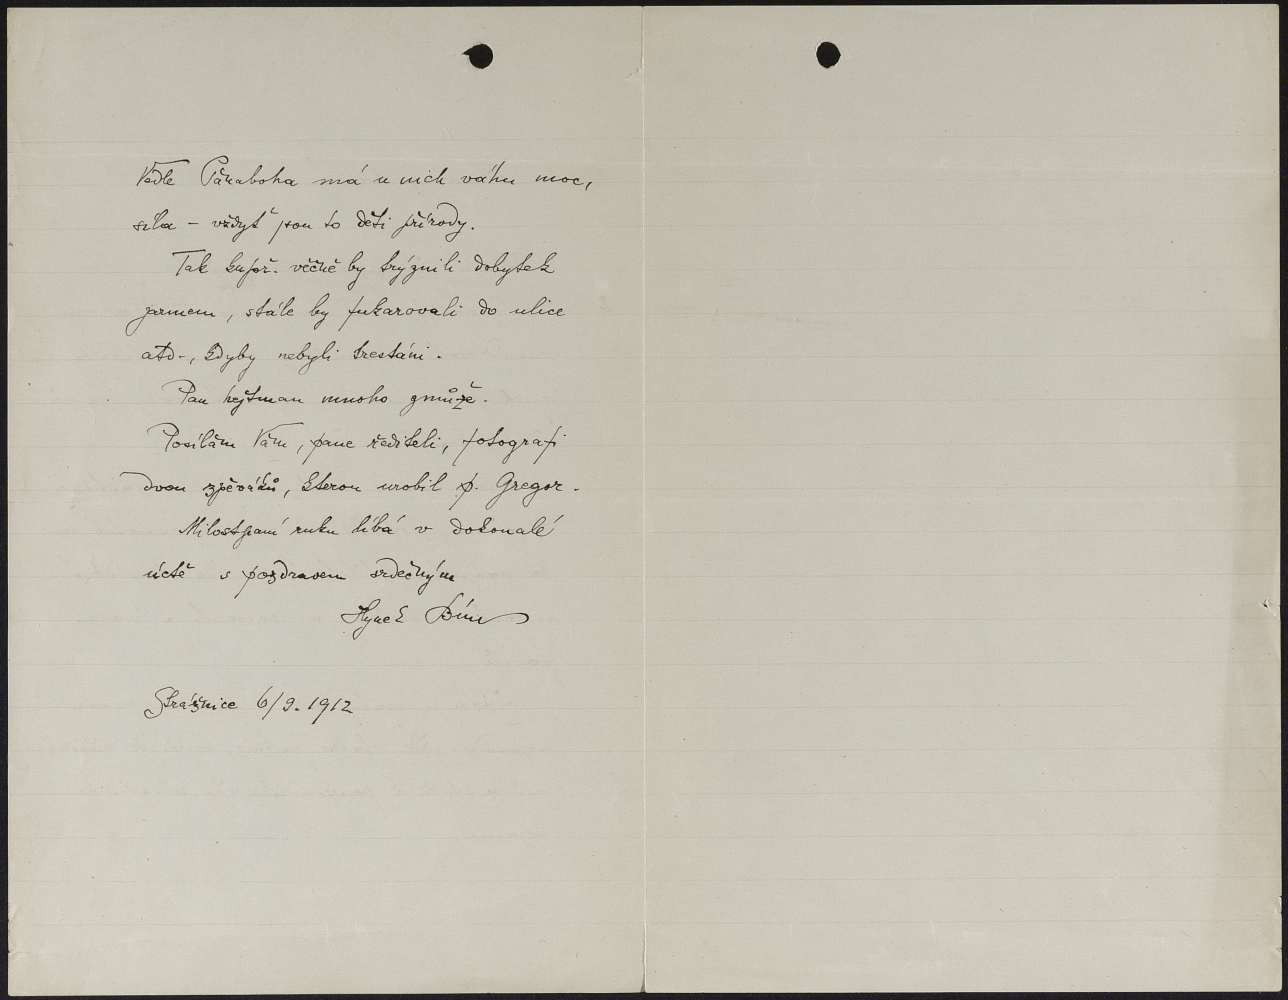 Vedle Pánaboha má u nich váhu moc,
síla – vždyť jsou to děti přírody.
Tak kupř. věčně by trýznili dobytek
jarmem, stále by fukarovali do ulice
atd., kdyby nebyli trestáni.
Pan hejtman mnoho zmůže.
Posílám Vám, pane řediteli, fotografi
dvou zpěváků, kterou urobil p. Gregor.
Milostpaní ruku líbá v dokonalé
úctě s pozdravem srdečným
Hynek Bím
Strážnice 6/9. 1912